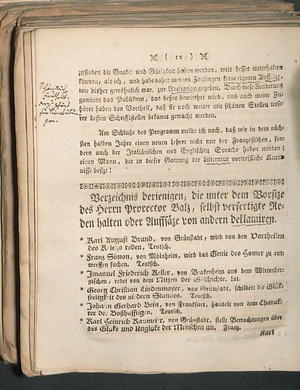 ( 12 )
zusteden die Gnade und Gütigkeit haben werden, weit besser unterhalten
können, als ich, und habe daher meinen Zöglingen keine eigenen Aufsätze,
wie bisher gewöhnlich war, zur Recitation gegeben. Durch diese Aenderung
gewinnt das Publikum, das besser bewirthet wird, und auch meine Zu-
hörer haben den Vortheil, daß sie noch weiter mit schönen Stellen unse-
rer besten Schriftsteller bekannt gemacht werden.
Am Schluße des Programm melde ich noch, daß wir in dem näch-
sten halben Jahre einen neuen Lehrer nicht nur der Französischen, son-
dern auch der Italiänischen und Englischen Sprache haben werden;
einen Mann, der in dieser Gattung der Litteratur vortrefliche Kennt-
nisse besitzt!
Verzeichnis derienigen, die unter dem Vorsitze
des Herrn Prorector Balz, selbst verfertigte Re-
den halten oder Auffsätze von andern deklamiren.
* Karl August Brand, von Grünstadt, wird von den Vortheilen
des Krieges reden. Teutsch.
* Franz Simon, von Mölsheim, wird das Genie des Homer zu ent-
werfen suchen. Teutsch.
* Imanuel Friederich Keller, von Bakenheim aus dem Wirtember-
gischen, redet von dem Nutzen der Geschichte. lat.
* Georg Christian Lindenmayer, von Grünstadt, schildert die Glük-
seeligkeit des niedern Standes. Teutsch.
* Johann Gerhard Bein, von Frankfurt, handelt von dem Charak-
ter des Boßhafftigen. Teutsch.
* Karl Heinrich Razmeier, von Grünstadt, stellt Betrachtungen über
das Glüke und Unglüke der Menschen an. Franz.
Karl